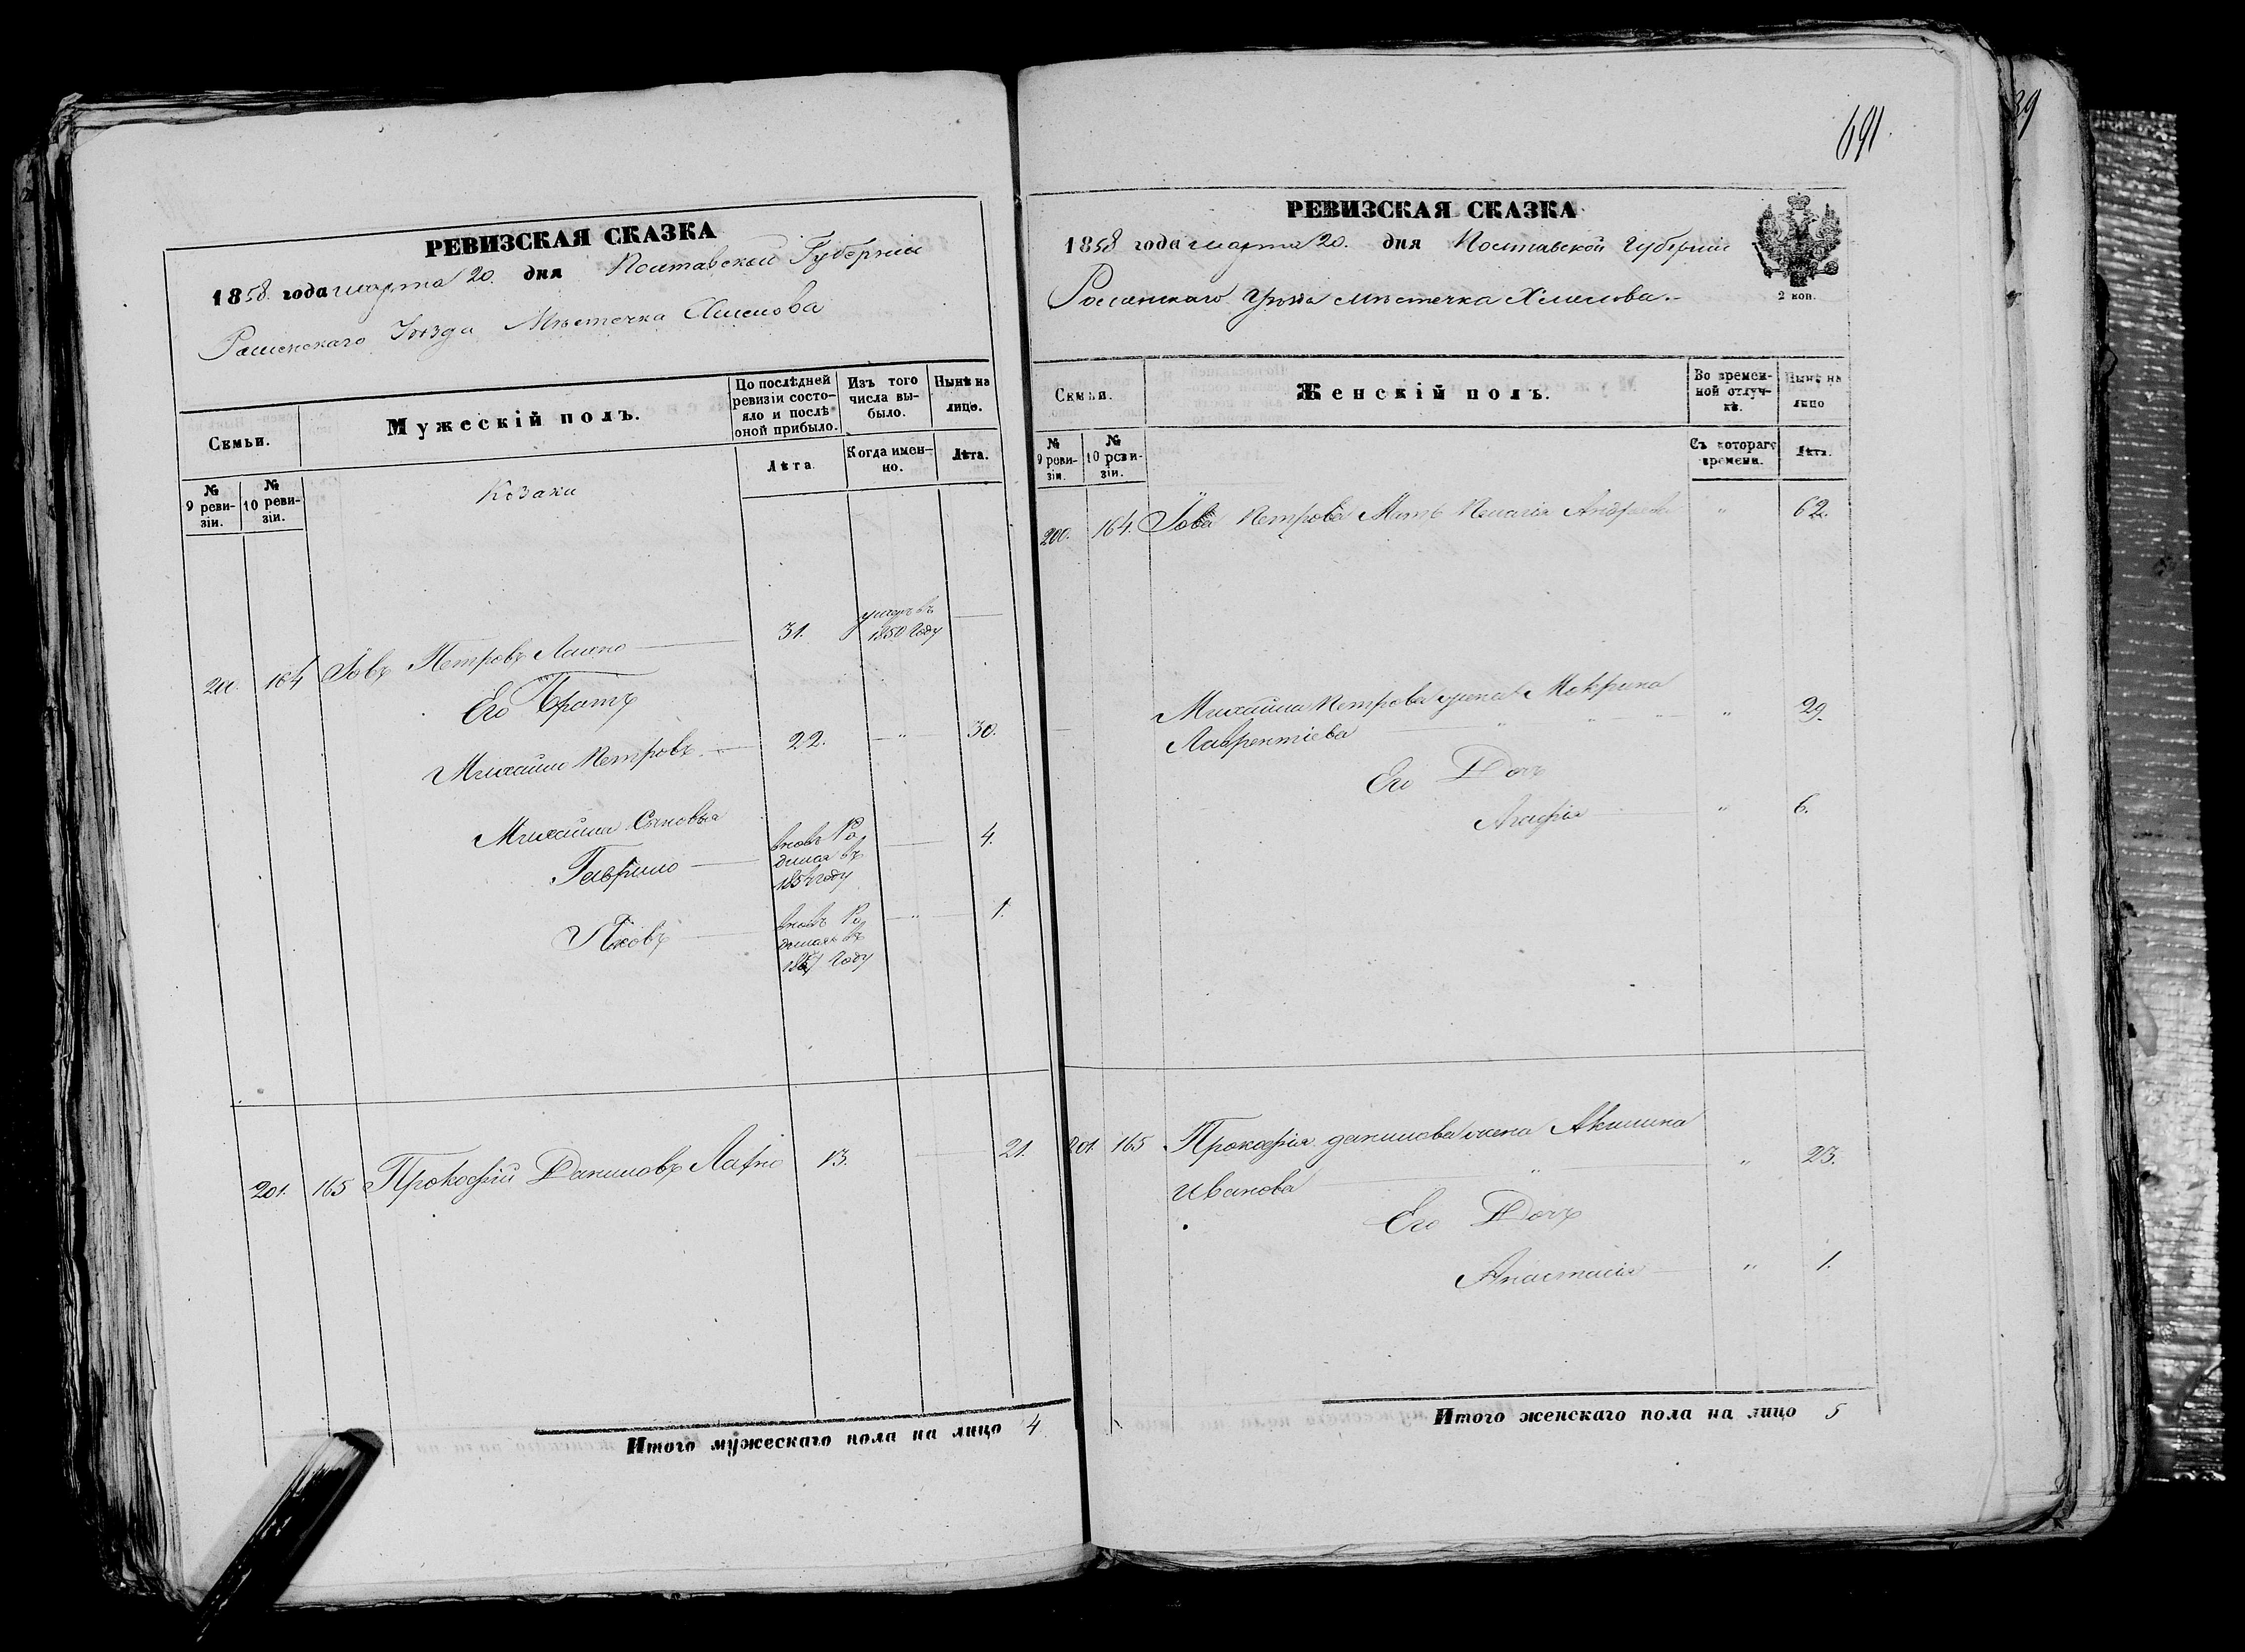 РЕВИЗСКАЯ СКАЗКА
1858 года марта 20. дня Полтавской Губерніи
Роменскаго Уѣзда Мѣстечка Хмелова
Семьи.
Мужескій полъ.
По послѣдней ревизіи состояло и послѣ оной прибыло.
Изъ того числа выбыло.
Нынѣ на лицо.
№ 9 ревизіи.
№ 10 ревизіи.
Козаки
Лѣта.
Когда именно.
Лѣта.
164 Іовъ Петровъ 31. умеръ въ
1850 Году
Его Братъ
Михайло Петровъ 22. " 30.
Михайла Сыновья
Гаврило вновь Ро- 4.
дился въ
1854 году
Яковъ вновь Ро- " 1.
дился въ
1857 Году
201. 165 Прокофій Даниловъ 13. 21.
Итого мужескаго пола на лицо 4
691.
39
РЕВИЗСКАЯ СКАЗКА
1858 года марта 20. дня Полтавской Губерніи
Роменскаго Уѣзда Мѣстечка Хмелова.
2 коп.
Семьи.
Женскій полъ.
Во временной отлучкѣ.
Нынѣ на лицо
№ 9 ревизіи.
№ 10 ревизіи.
Съ котораго времени.
Лѣта.
200. 164. Іова Петрова Мать Пелагія Андреева " 62.
Михайла Петрова жена Мокрина
Лаврентіева " 29.
Его Дочь
Агафія " 6.
201. 165 Прокофія Данилова жена Акилина
Иванова " 23.
Его Дочь
Анастасія " 1.
Итого женскаго пола на лицо 5